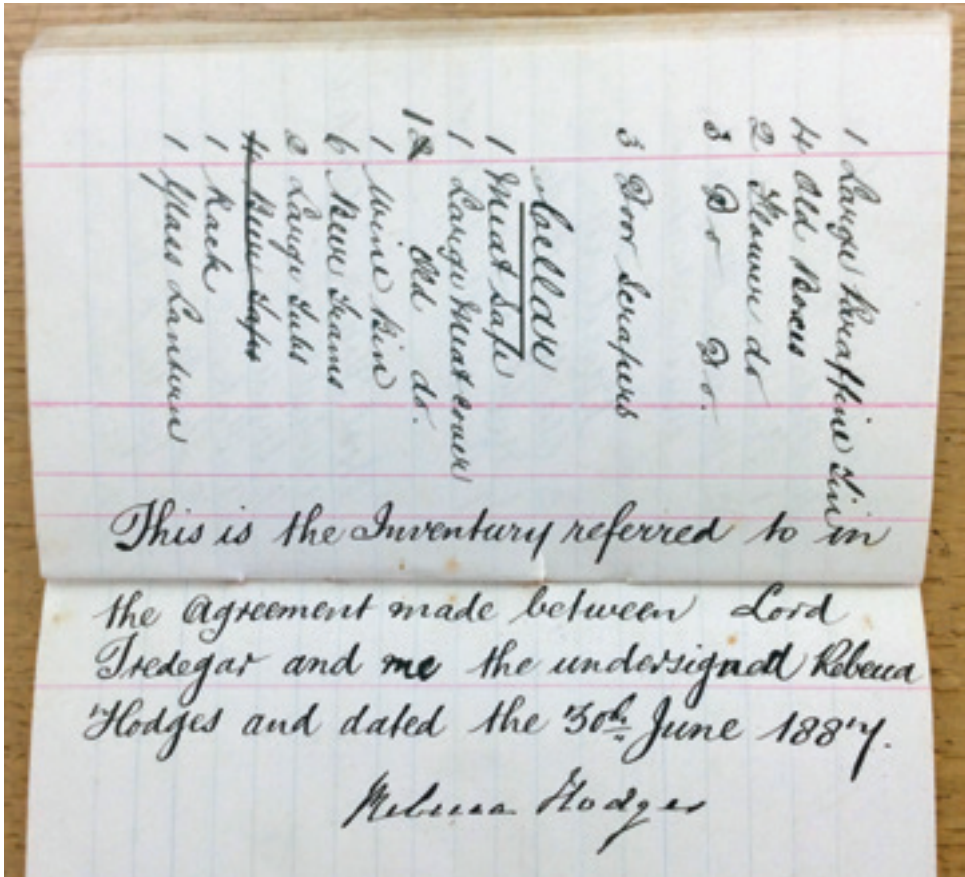 1 Large Paraffine Tin
4 Old Boxes
2 Flower do
3 Do Do.
3 Door Scrapers
Cellar
1 Meat Safe
1 Large Meat cover
1 Old do.
1 Wine Bin
6 Beer Trams
2 Large Tubs
4 Beer Taps
1 Rack
1 Glass Lantern
This is the Inventory referred to in
the Agreement made between Lord
Tredegar and me the undersigned Rebecca
Hodges and dated the 30th June 1887.
Rebecca Hodges